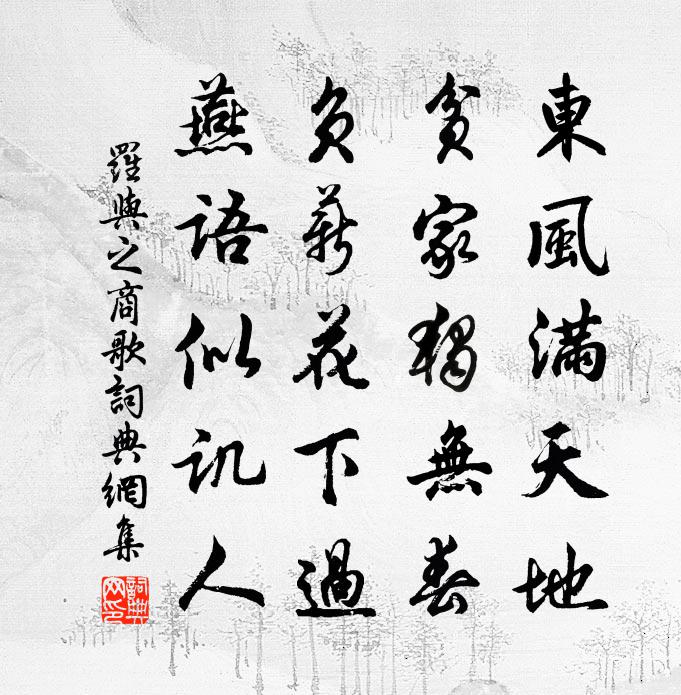 東風滿天地
貧家獨無春
負薪花下過
燕語似訊人
羅與之商歌詞典網集